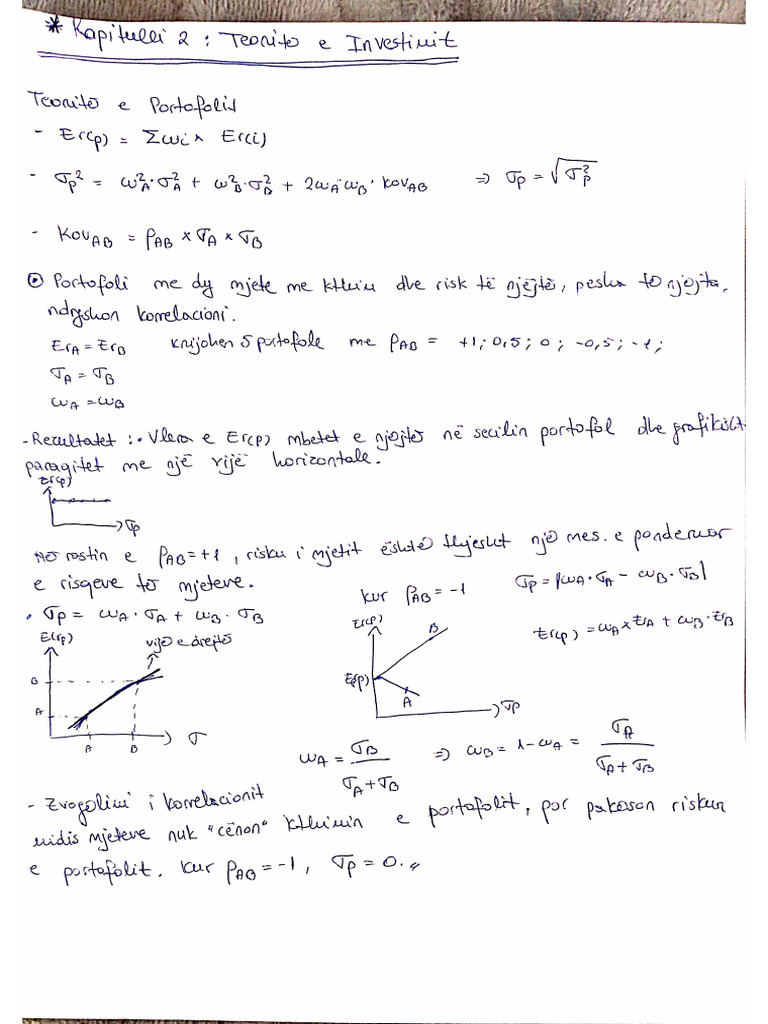 * Kapitulli 2 : Teoritë e Investimit
Teoritë e Portofolit
- Er(p) = Σωi × Er(i)
- σp² = ω²A·σ²A + ω²B·σ²B + 2ωA·ωB·kovAB ⇒ σp = √σ²p
- KovAB = ρAB × σA × σB
⊙ Portofoli me dy mjete me kthim dhe risk të njëjtë, pesha të njojta,
ndryshon korrelacioni.
ErA = ErB krijohen 5 portofole me ρAB = +1; 0,5; 0; -0,5; -1;
σA = σB
ωA = ωB
- Rezultatet : • Vlera e Er(p) mbetet e njojtë në secilin portofol dhe grafikisht
paraqitet me një vijë horizontale.
Er(p)
σp
Në rastin e ρAB = +1, risku i mjetit është thjesht një mes. e ponderuar
e risqeve të mjeteve.
• σp = ωA · σA + ωB · σB
kur ρAB = -1 σp = |ωA · σA - ωB · σB|
Er(p) = ωA × ErA + ωB · ErB
E(rp)
vijë e drejtë
B
A
A B σ
Er(p)
B
E(p)
A
σp
ωA = σB / (σA + σB) ⇒ ωB = 1 - ωA = σA / (σA + σB)
- Zvogëlimi i korrelacionit
midis mjeteve nuk "cënon" kthimin e portofolit, por pakëson riskun
e portofolit. Kur ρAB = -1, σp = 0.